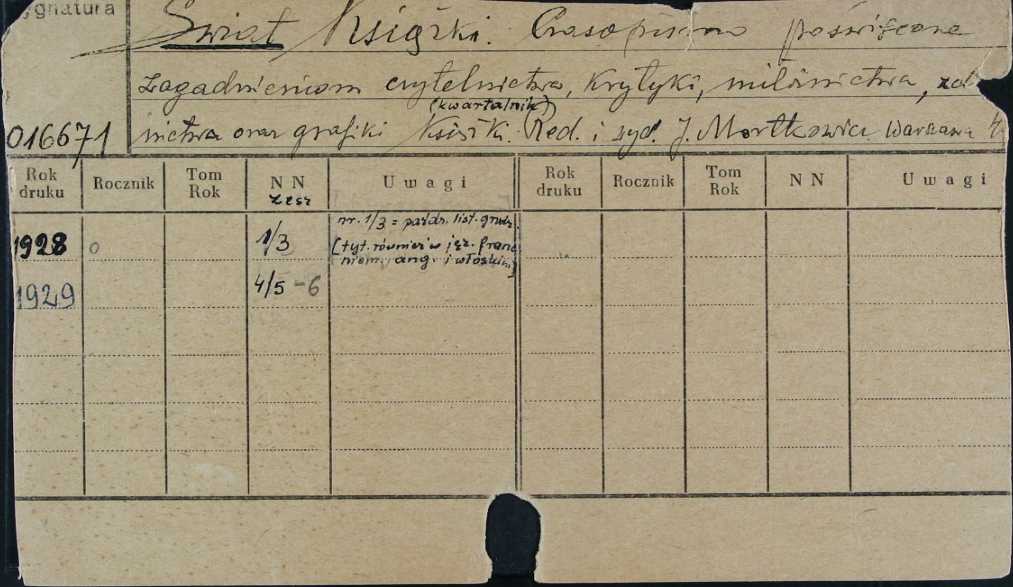 ygnatura
Świat Książki. Czasopismo poświęcone
zagadnieniom czytelnictwa, krytyki, miłośnictwa, zd
(kwartalnik)
016671 nictwa oraz grafiki książk. Red. i wyd. J. Mortkowicz Warszawa 4
Rok druku Rocznik Tom Rok NN Uwagi Rok druku Rocznik Tom Rok NN Uwagi
zesz
nr. 1/3 = paźdz. list. grudz.
1928 0 1/3 [tyt. również w jęz. franc
niem, ang. i włoskim]
1929 4/5 -6